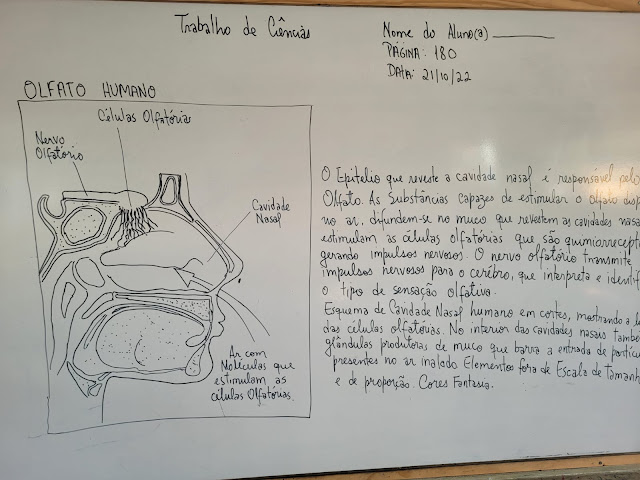 Trabalho de Ciências
Nome do Aluno(a)
PÁGINA: 180
DATA: 21/10/22
OLFATO HUMANO
Células Olfatórias
Nervo
Olfatório
Cavidade
Nasal
Ar com
Moléculas que
estimulam as
células Olfatórias.
O Epitelio que reveste a cavidade nasal é responsável pelo
Olfato. As Substâncias capazes de estimular o olfato disp
no ar, difundem-se no muco que revestem as cavidades nasa
estimulam as células olfatórias que são quimiorrecept
gerando impulsos nervosos. O nervo olfatório transmite
impulsos nervosos para o cérebro, que interpreta e identif
o tipo de sensação olfativa.
Esquema de Cavidade Nasal humano em cortes, mostrando a
das células olfatórias. No interior das cavidades nasais també
glândulas produtoras de muco que barra a entrada de partícu
presentes no ar inalado Elementos fora de Escala de Tamanh
e de proporção. Cores Fantasia.